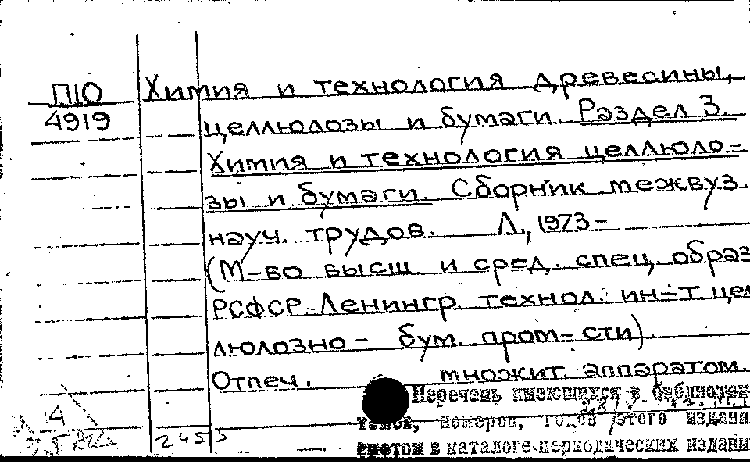 П10 Химия и технология древесины,
4919 целлюлозы и бумаги. Раздел 3.
Химия и технология целлюло-
зы и бумаги. Сборник межвуз.
науч. трудов. Л., 1973-
(М-во высш. и сред. спец. образ
РСФСР. Ленингр. технол. ин-т цел
люлозно-бум. пром-сти).
Отпеч. множит. аппаратом.
Перечень имеющихся в библиотеке
томов, номеров, годов этого издани
смотри в каталоге периодических издани
4
2453